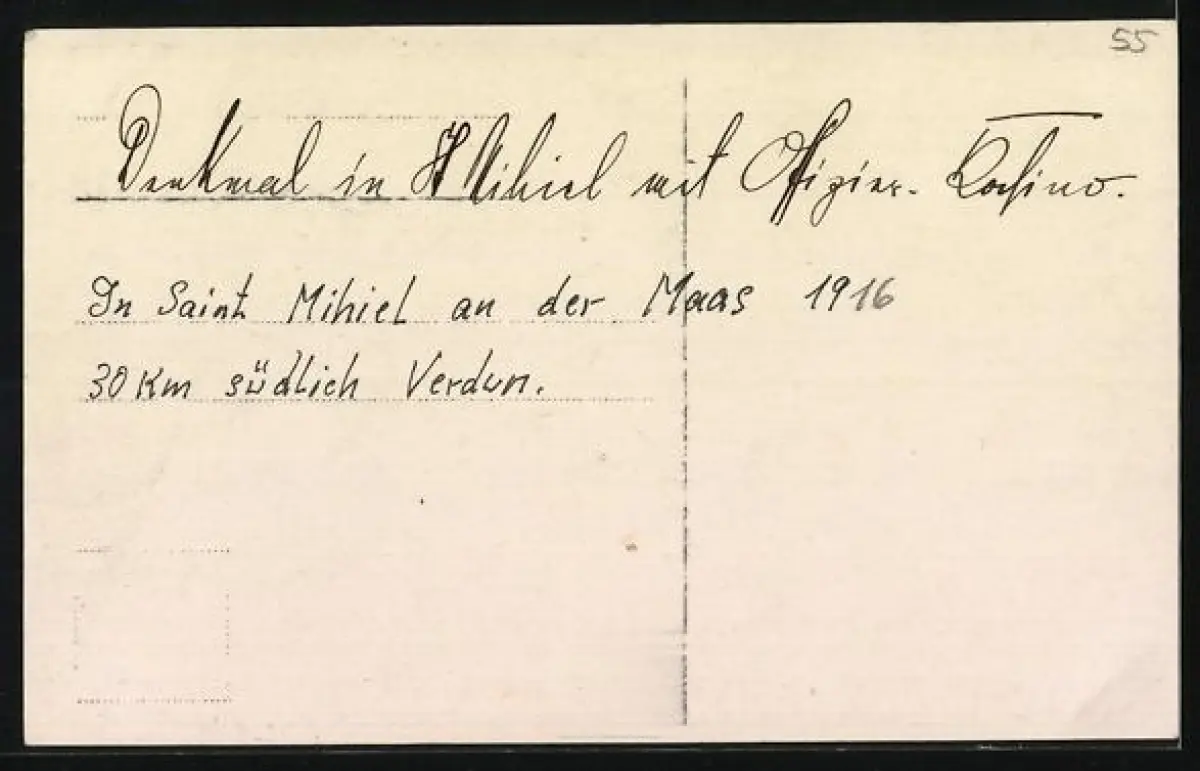 55
Denkmal in St Mihiel mit Offizier-Kasino.
In Saint Mihiel an der Maas 1916
30 Km südlich Verdun.